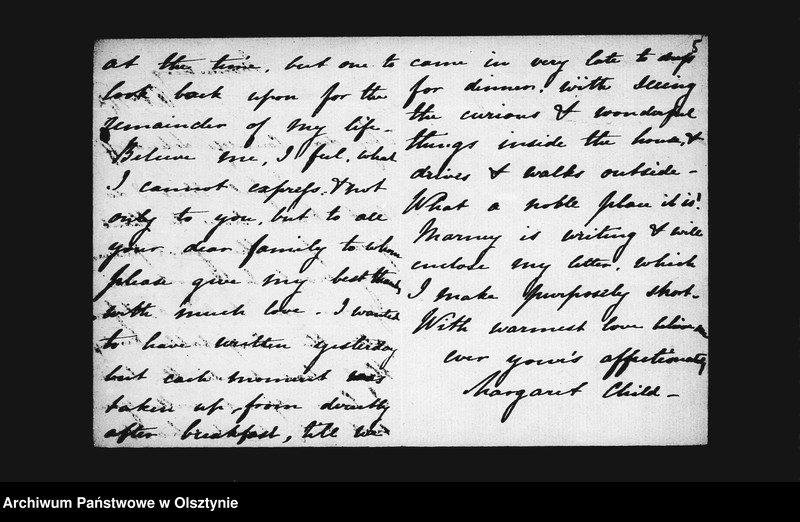 at the time, but one to
look back upon for the
remainder of my life.
Believe me, I feel, what
I cannot express, & not
only to you, but to all
your dear family to whom
please give my best thanks
with much love. I wanted
to have written yesterday
but each moment was
taken up, from directly
after breakfast, till we
5
came in very late to dress
for dinner, with seeing
the curious & wonderful
things inside the house, &
drives & walks outside -
What a noble place it is!
Marney is writing & will
enclose my letter, which
I make purposely short.
With warmest love believe me
ever yours affectionately
Margaret Child -
Archiwum Państwowe w Olsztynie